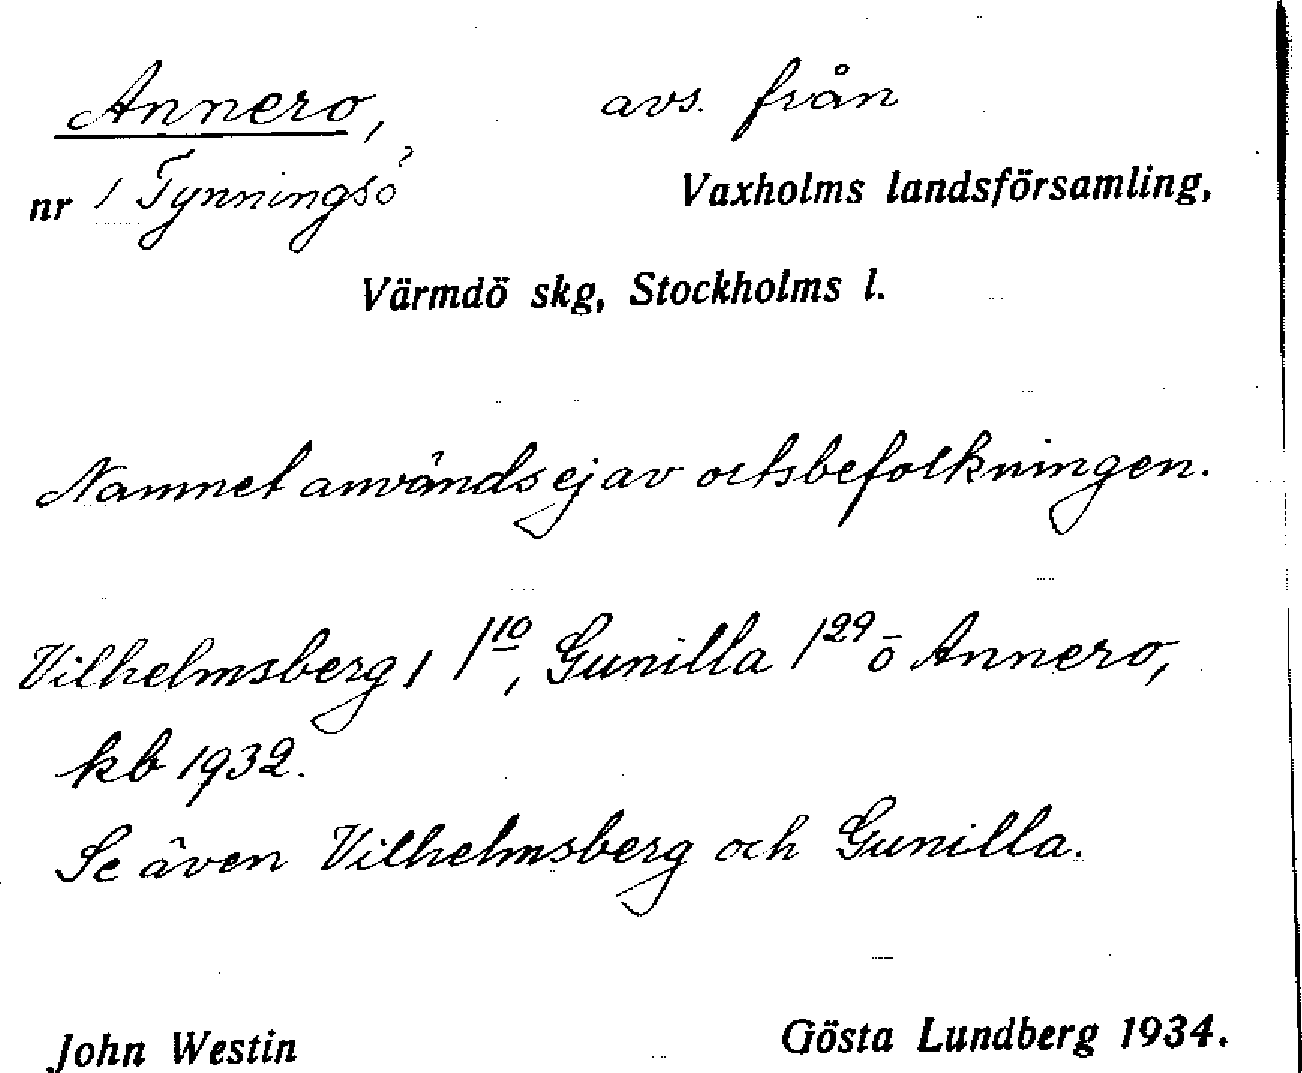 Annero, avs. från
nr 1 Tynningsö Vaxholms landsförsamling,
Värmdö skg, Stockholms l.
Namnet användes ej av ortsbefolkningen.
Vilhelmsberg 1 1¹⁰, Gunilla 1²⁹ o Annero,
kb 1932.
Se även Vilhelmsberg och Gunilla.
John Westin Gösta Lundberg 1934.